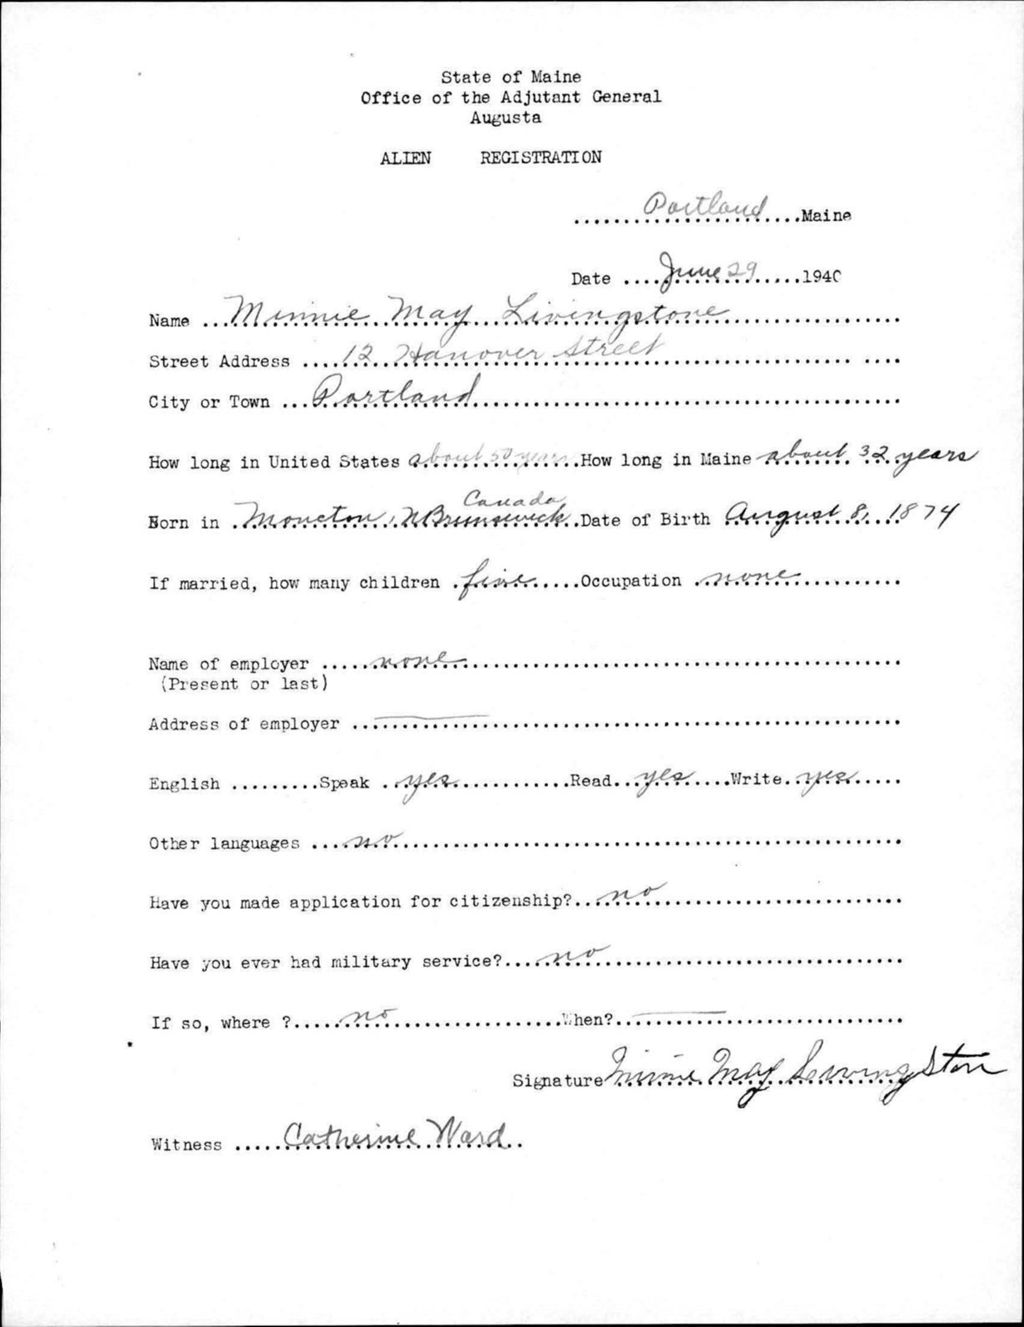 State of Maine
Office of the Adjutant General
Augusta
ALIEN REGISTRATION
.......Portland.......Maine
Date ....June 29......1940
Name ...Minnie May Livingstone...................
Street Address ....12 Hanover Street.................... ....
City or Town ...Portland.................................
How long in United States about 50 years...How long in Maine about 32 years
Canada
Born in .Moncton, N Brunswick..Date of Birth August 8, 1874
If married, how many children .five.....Occupation .none..........
Name of employer .....none.................................
(Present or last)
Address of employer ...—...................................
English .........Speak ..yes...........Read...yes....Write..yes.....
Other languages ....no.....................................
Have you made application for citizenship?...no.....................
Have you ever had military service?....no.........................
If so, where ?.....no.................When?..—...............
Signature Minnie May Livingstone
Witness .....Catherine Ward..